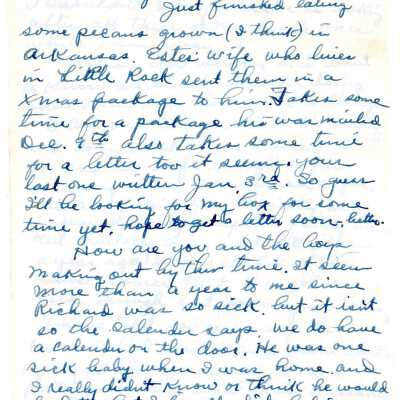 Just finished eating
some pecans grown (I think) in
Arkansas. Estes' wife who lives
in Little Rock sent them in a
Xmas package to him. Takes some
time for a package his was mailed
Dec. 9th also takes some time
for a letter too it seems. your
last one written Jan, 3rd. So guess
I'll be looking for my box for some
time yet, hope to get a letter soon,
How are you and the boys
making out by this time. It seem
more than a year to me since
Richard was so sick. but it isn't
so the calender says. we do have
a calender on the door. He was one
sick baby when I was home. and
I really didn't know or think he would